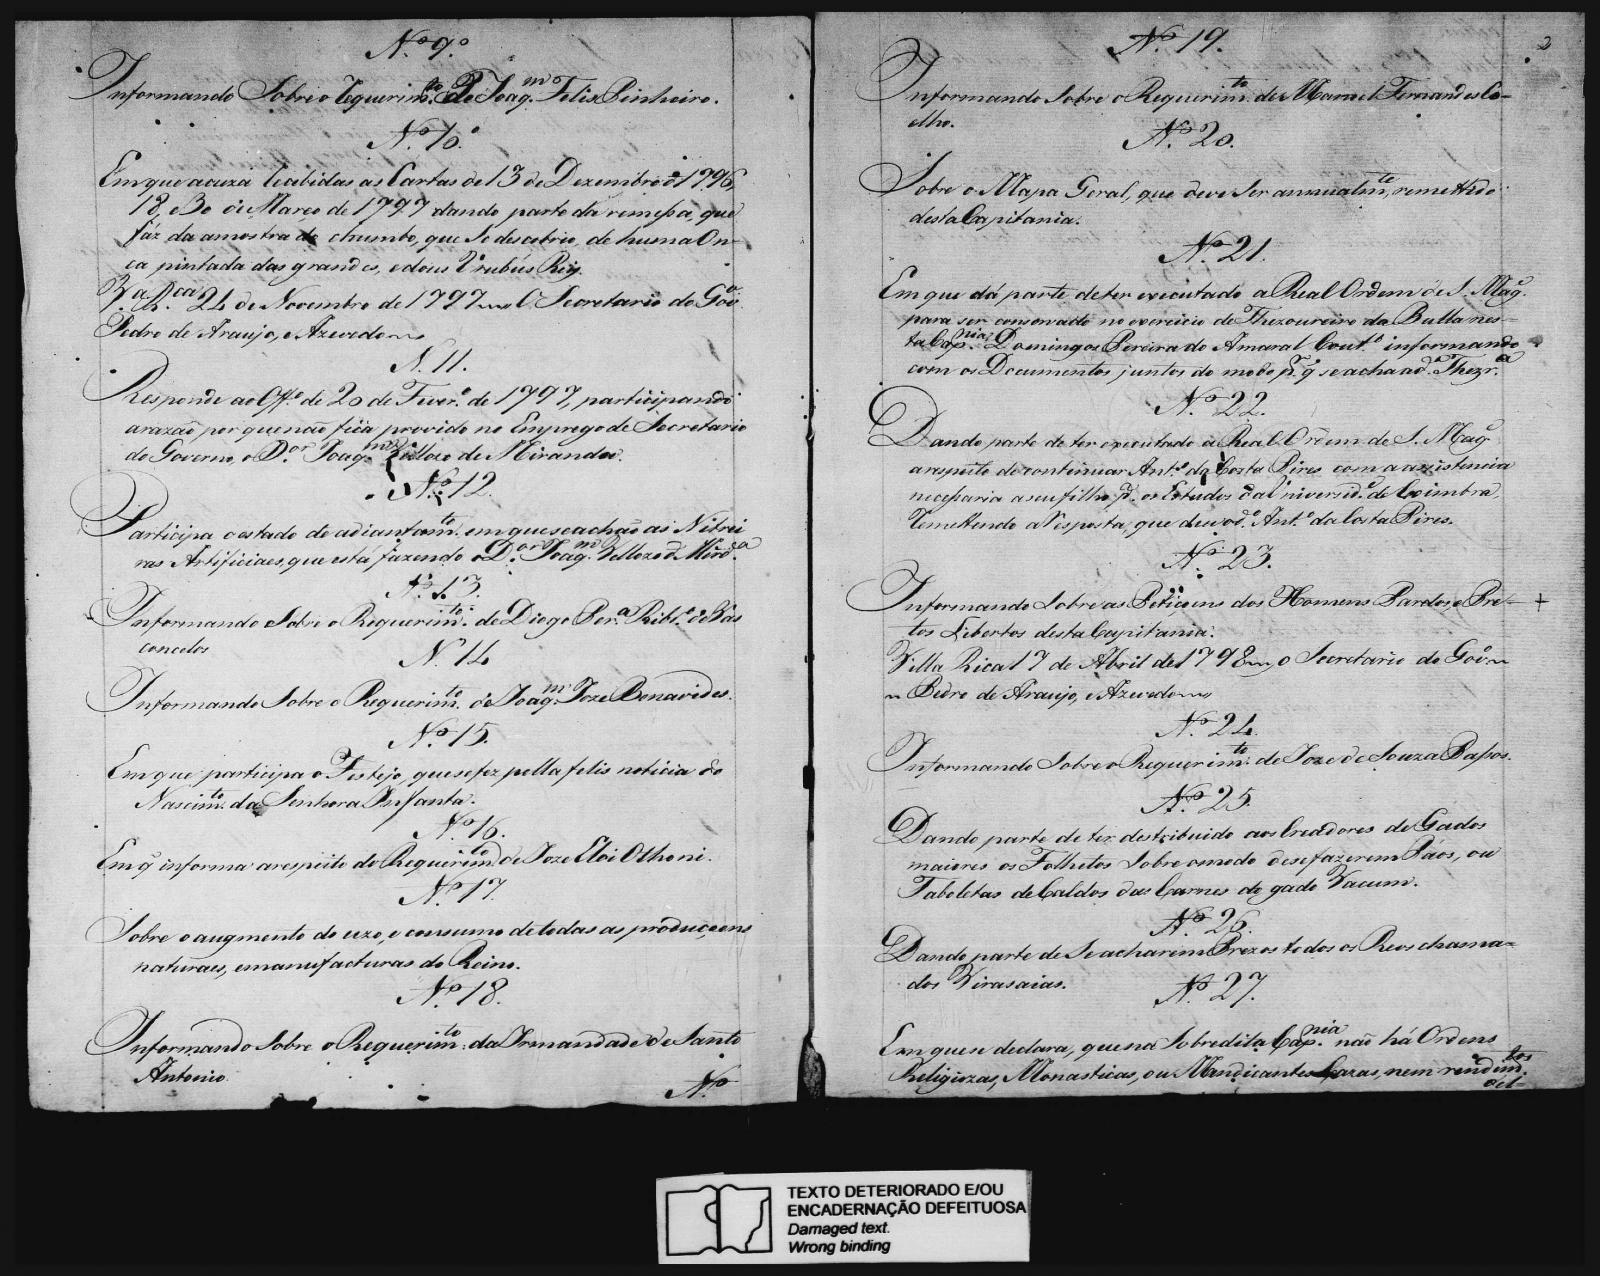 N.º 9.º
Informando Sobre o Requerim.to de Joaq.m Felis Pinheiro.
N.º 10.º
Em que acuza recebidas as Cartas de 13 de Dezembro de 1796,
18, e 30 de Março de 1797 dando parte da remessa, que
fáz da amostra de chumbo, que se descobrio, de huma On-
ça pintada das grandes, e dous Urubús Rey.
V.a R.ca 24 de Novembro de 1797 O Secretario do Gov.o
Pedro de Araujo, e Azevedo
N. 11.
Responde ao Off.o de 20 de Fever.o de 1797, participando
a razaõ por que naõ fica provido no Emprego de Secretario
do Governo, o D.or Joaq.m Vellozo de Miranda.
N.º 12.
Participa o estado de adiantam.to em que se achaõ as Nitrei
ras Artificiaes, que está fazendo o D.or Joaq.m Vellozo de Mird.a
N.º 13.
Informando Sobre o Requerim.to de Diogo Per.a Rib.o de Vas
concelos
N. 14
Informando Sobre o Requerim.to de Joaq.m Joze Benavides.
N.º 15.
Em que participa o Festejo, que se fez pella felis noticia do
Nascim.to da Senhora Infanta.
N.º 16.
Em q̃ informa a respeito do Requerim.to de Joze Eloi Othoni.
N.º 17.
Sobre o augmento do uzo, e consumo de todas as producçoens
naturaes, e manufacturas do Reino.
N.º 18.
Informando Sobre o Requerim.to da Irmandade de Santo
Antonio.
N.º
2
N.º 19.
Informando Sobre o Requerim.to de Manoel Fernandes Co-
elho.
N.º 20.
Sobre o Mapa Geral, que deve Ser annualm.te remettido
desta Capitania.
N.º 21.
Em que dá parte de ter executado a Real Ordem de S. Mag.e
para ser conservado no exercicio de Thezoureiro da Bulla nes-
ta Cap.nia Domingos Pereira do Amaral Cout.o informando
com os Documentos juntos do modo p.r q̃ se acha a d.a Thezr.a
N.º 22.
Dando parte de ter executado a Real Ordem de S. Mag.e
a respeito de continuar Ant.o da Costa Pires com a assistencia
necessaria a seu filho, p.a os Estudos da Universid.e de Coimbra,
remettendo a resposta, que deu o d.o Ant.o da Costa Pires.
N.º 23.
Informando Sobre as Petiçoens dos Homens Pardos, e Pre- +
tos Libertos desta Capitania.
Villa Rica 17 de Abril de 1798 o Secretario do Gov.o
Pedro de Araujo, e Azevedo
N.º 24.
Informando Sobre o Requerim.to de Joze de Souza Passos.
N.º 25.
Dando parte de ter destribuido aos Creadores de Gados
maiores os Folhetos Sobre o modo de se fazerem Páos, ou
Taboletas de Caldos das Carnes do gado Vacum.
N.º 26.
Dando parte de Se acharem Prezos todos os Reos chama-
dos Virasaias.
N.º 27.
Em que se declara, que na Sobredita Cap.nia não há Ordens
Religiozas, Monasticas, ou Mendicantes Cazas, nem rendim.tos
TEXTO DETERIORADO E/OU
ENCADERNAÇÃO DEFEITUOSA
Damaged text.
Wrong binding